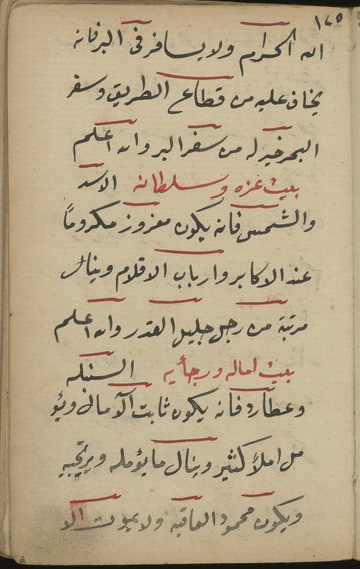 ١٧٥
الله الحرام ولا يسافر في البر فانه
يخاف عليه من قطاع الطريق وسفر
البحر خير له من سفر البر والله اعلم
بيت عزه وسلطانه الاسد
والشمس فانه يكون معزوز مكروماً
عند الاكابر وارباب الاقلام وينال
مرتبة من رجل جليل القدر والله اعلم
بيت اماله ورجأيه السنبله
وعطارد فانه يكون ثابت الامال ويؤ
مل املاً كثير وينال ما يؤمله ويرتجيه
ويكون محمود العاقبه ولا يموت الا